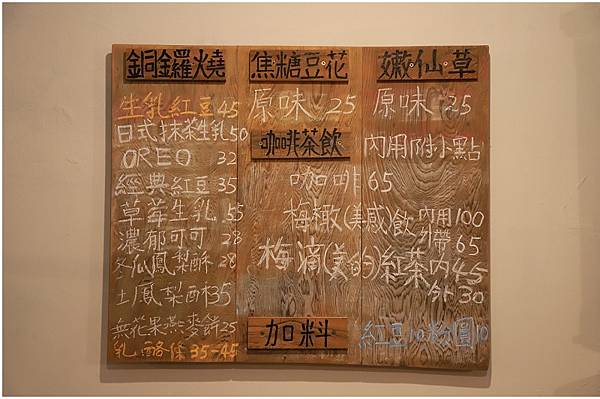 銅鑼燒
生乳紅豆45
日式抹茶生乳50
OREO 32
經典紅豆35
草莓生乳 55
濃郁可可 28
冬瓜鳳梨酥 28
土鳳梨酥35
無花果燕麥餅25
乳酪條35-45
焦糖豆花
原味 25
咖啡茶飲
嫩仙草
原味 25
內用附小點
咖啡65
梅橄(美感)飲 內用100
外帶65
梅滴(美的)紅茶內45
外30
加料
紅豆10粉圓10